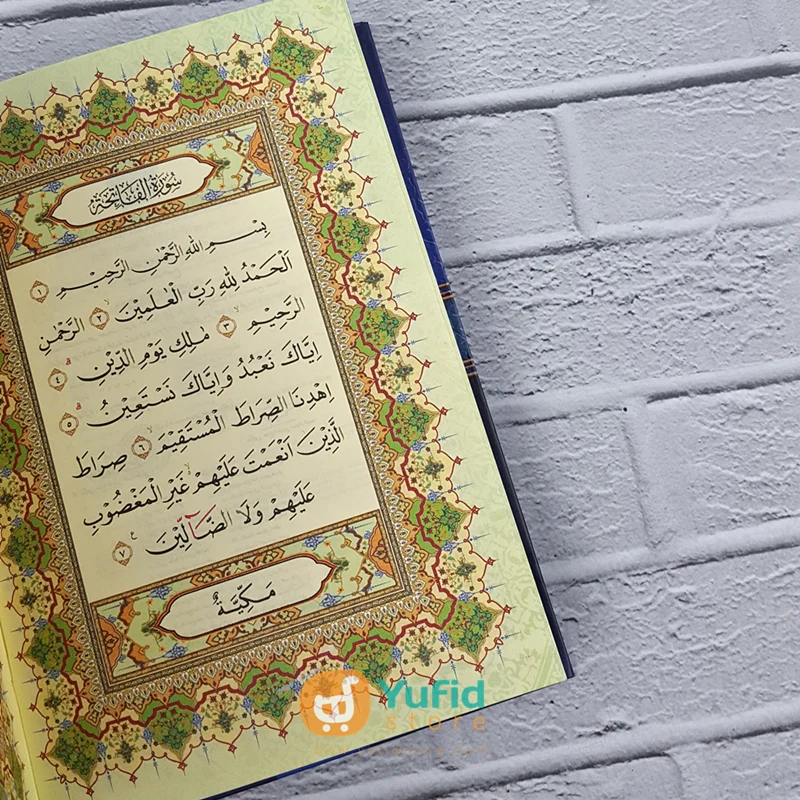 سُوْرَةُ الْفَاتِحَةِ
بِسْمِ اللّٰهِ الرَّحْمٰنِ الرَّحِيْمِ ١
اَلْحَمْدُ لِلّٰهِ رَبِّ الْعٰلَمِيْنَ ٢ الرَّحْمٰنِ
الرَّحِيْمِ ٣ مٰلِكِ يَوْمِ الدِّيْنِ ٤
اِيَّاكَ نَعْبُدُ وَاِيَّاكَ نَسْتَعِيْنُ ٥
اِهْدِنَا الصِّرَاطَ الْمُسْتَقِيْمَ ٦ صِرَاطَ
الَّذِيْنَ اَنْعَمْتَ عَلَيْهِمْ غَيْرِ الْمَغْضُوْبِ
عَلَيْهِمْ وَلَا الضَّاۤلِّيْنَ ٧
مَكِّيَّةٌ
Yufid
store